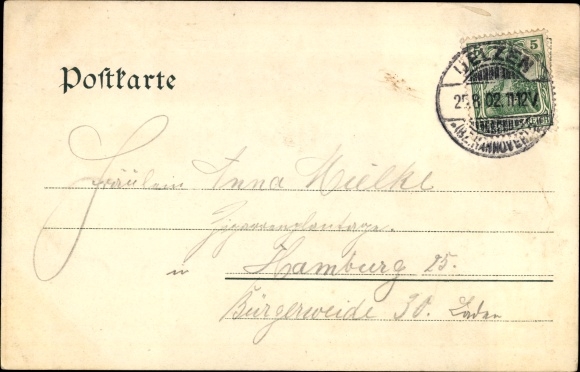 Postkarte
5
UELZEN
25.8.02. 11-12V.
(BZ. HANNOVER)
Fräulein Anna Mielke
Zigarrenplantage.
in Hamburg 25.
Bürgerweide 30. Laden